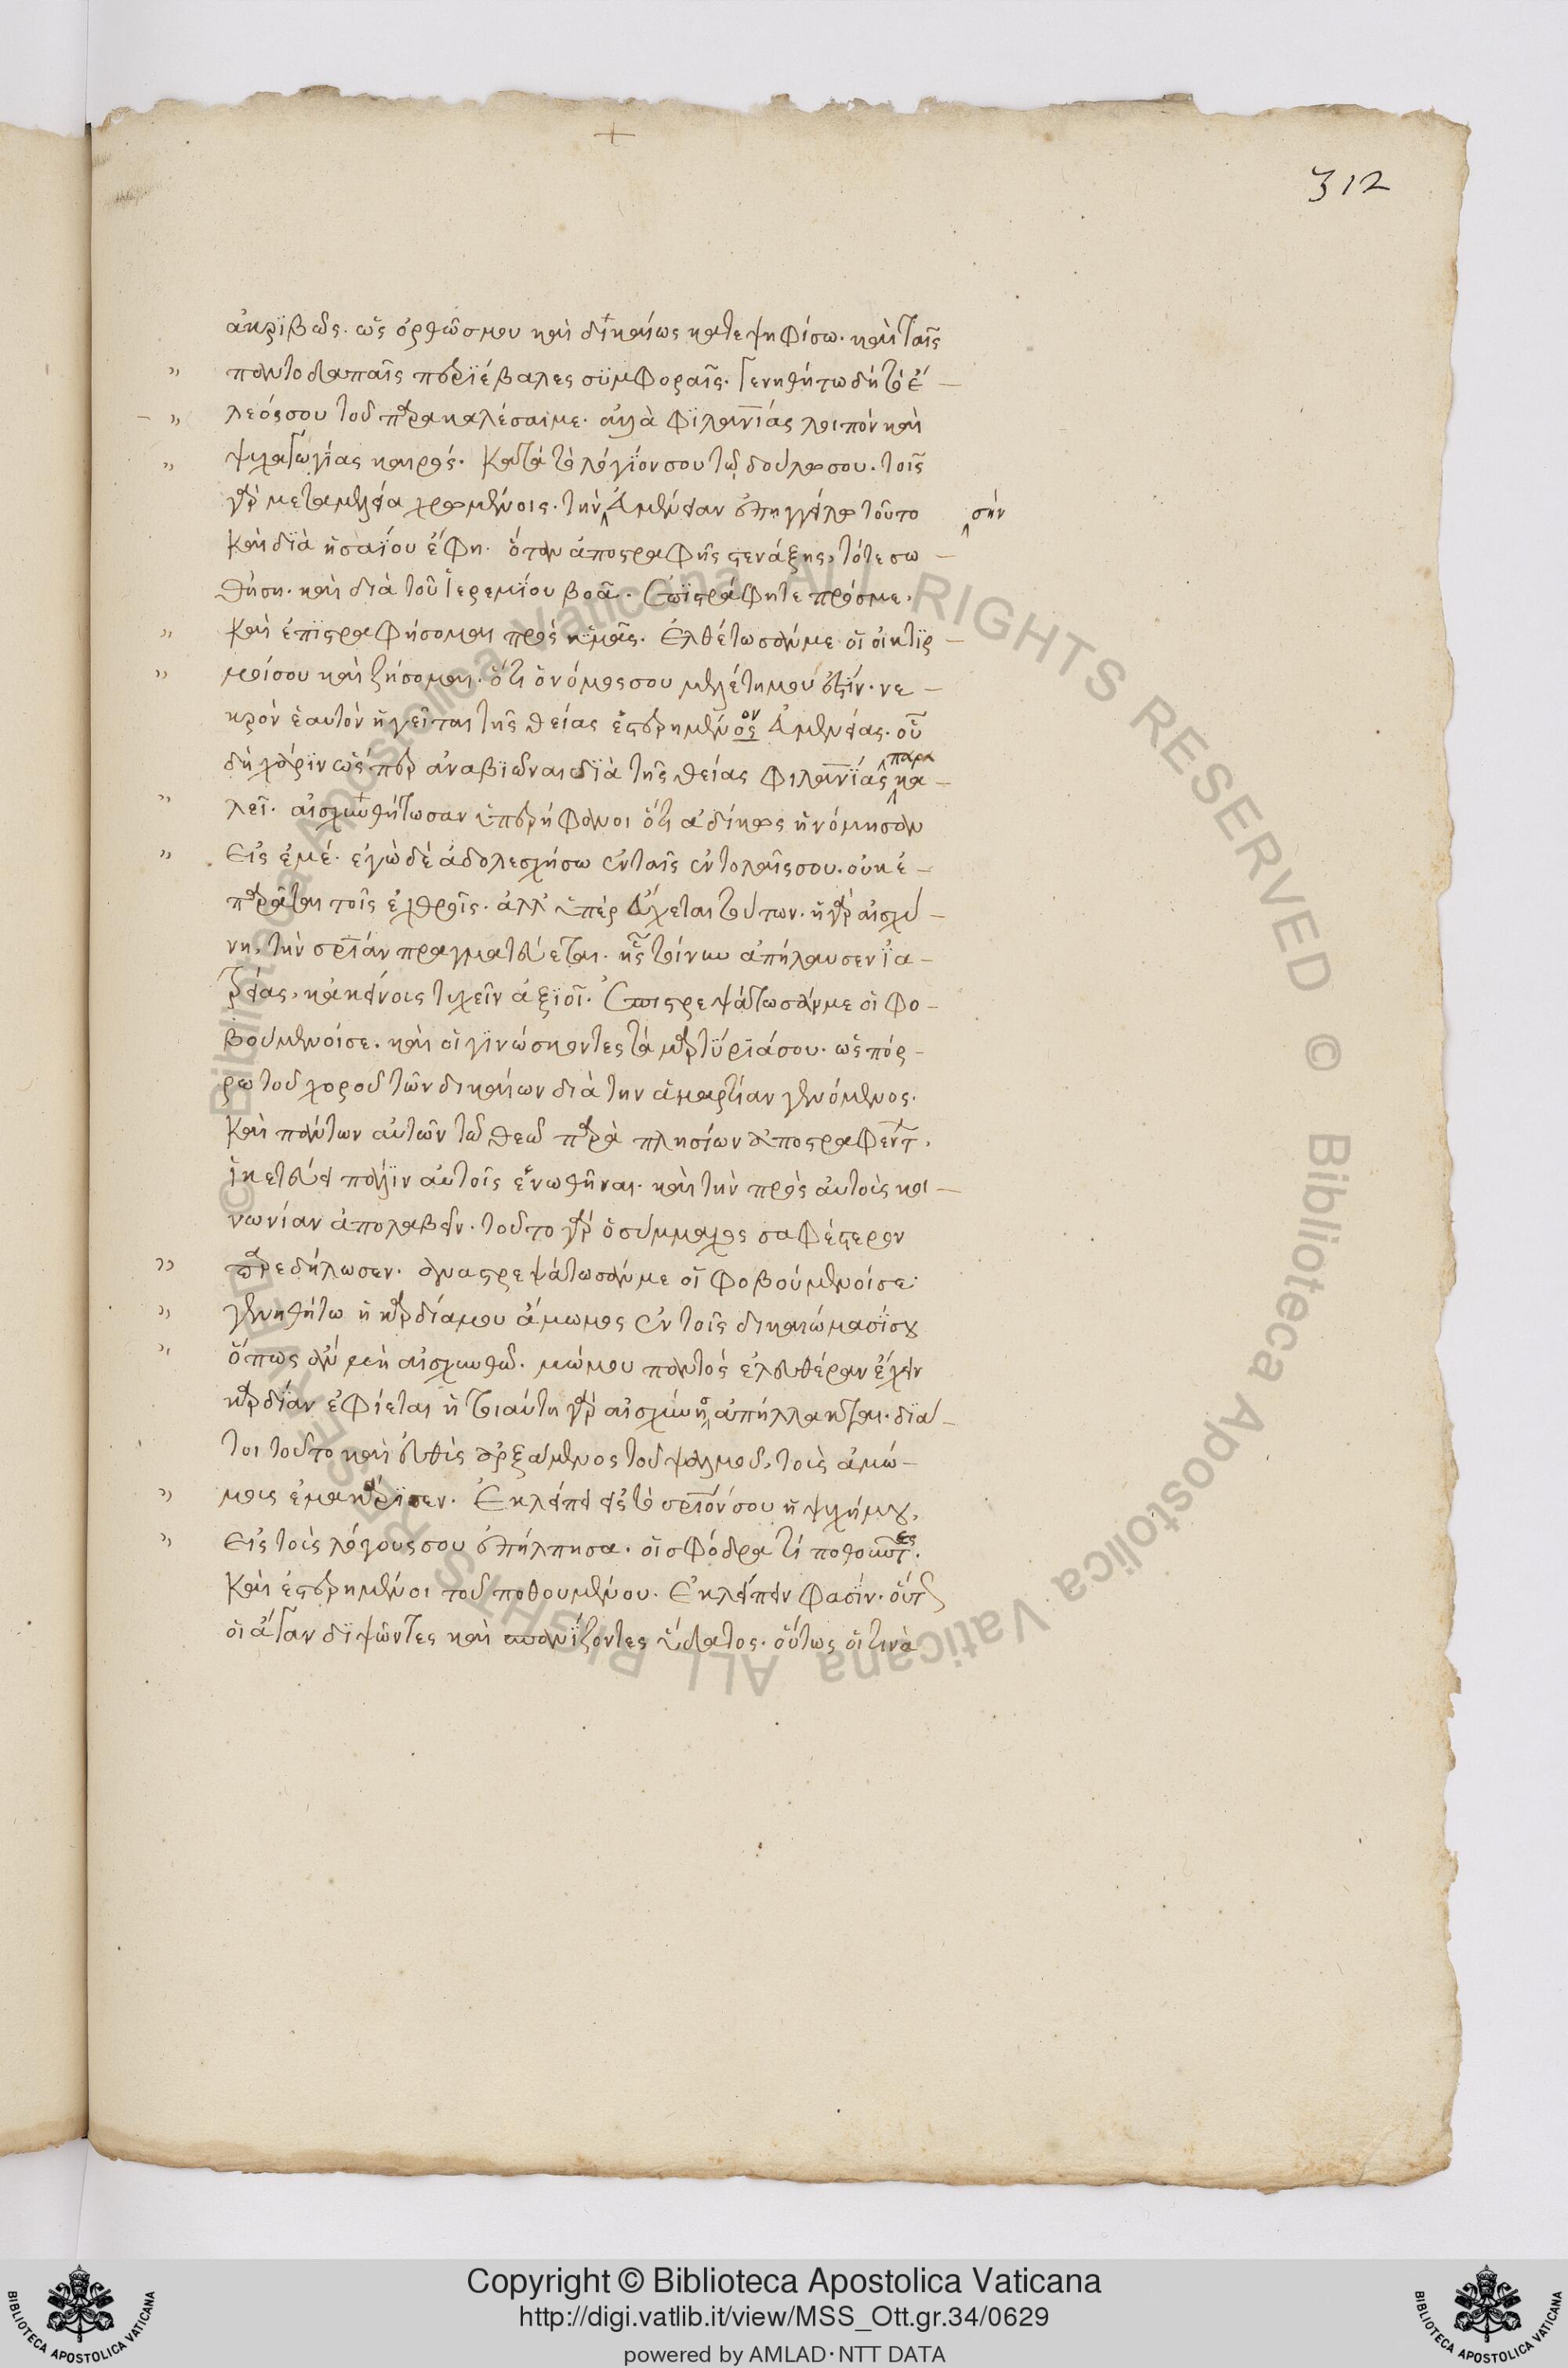 312
ἀκριβῶς. ὡς ὀρθῶς μου καὶ δικαίως κατεψηφίσω. καὶ ταῖς
παντοδαπαῖς περιέβαλες συμφοραῖς. Γενηθήτω δὴ τὸ ἔ-
λεός σου τοῦ παρακαλέσαι με. ἀλλὰ φιλανίας λοιπὸν καὶ
ψυχαγωγίας καιρός. Κατὰ τὸ λόγιόν σου τῶ δούλω σου. τοῖς
γὰρ μεταμελεία χρωμένοις. τὴν σὴν εὐμένειαν ἐπηγγείλω τοῦτο
καὶ διὰ ἡσαΐου ἔφη. ὅταν ἀποστραφῆς στενάξης, τότε σω-
θήση. καὶ διὰ τοῦ Ἱερεμίου βοᾶ. ἐπιστράφητε πρός με,
καὶ ἐπιστραφήσομαι πρὸς ὑμᾶς. ἐλθέτωσάν με οἱ οἰκτιρ-
μοί σου καὶ ζήσομαι. ὅτι ὁ νόμος σου μελέτη μου ἐστίν. νε-
κρὸν ἑαυτὸν ἡγεῖται τῆς θείας ἐστερημένος ον εὐμενείας. οὗ
δὴ χάριν ὥσπερ ἀναβιῶναι διὰ τῆς θείας φιλανίας παρα κα-
λεῖ. αἰσχυνθήτωσαν ὑπερήφανοι ὅτι ἀδίκως ἠνόμησαν
εἰς ἐμέ. ἐγὼ δὲ ἀδολεσχήσω ἐν ταῖς ἐντολαῖς σου. οὐκ ἐ-
παρᾶται τοῖς ἐχθροῖς. ἀλλ' ὑπερεύχεται τούτων. ἡ γὰρ αἰσχύ-
νη, τὴν σρίαν πραγματεύεται. ἧς τοίνυν ἀπήλαυσεν ἰα-
τρείας, κἀκείνοις τυχεῖν ἀξιοῖ. ἐπιστρεψάτωσάν με οἱ φο-
βούμενοί σε. καὶ οἱ γινώσκοντες τὰ μαρτύριά σου. ὡς πόρ-
ρω τοῦ χοροῦ τῶν δικαίων διὰ τὴν ἁμαρτίαν γενόμενος.
καὶ πάντων αὐτῶν τῶ θεῶ παρα πλησίων ἀποστραφέντ,
ἱκετεύει πάλιν αὐτοῖς ἑνωθῆναι. καὶ τὴν πρὸς αὐτοὺς κοι-
νωνίαν ἀπολαβεῖν. τοῦτο γὰρ ὁ σύμμαχος σαφέστερον
παρεδήλωσεν. ἀναστρεψάτωσάν με οἱ φοβούμενοί σε·
γενηθήτω ἡ καρδία μου ἄμωμος ἐν τοῖς δικαιώμασί σου
ὅπως ἂν μὴ αἰσχυνθῶ. μώμου παντὸς ἐλευθέραν ἔχειν
καρδίαν ἐφίεται ἡ τοιαύτη γὰρ αἰσχύνης ἀπήλλακται. διά-
τοι τοῦτο καὶ εὐθὺς ἀρξάμενος τοῦ ψαλμοῦ, τοὺς ἀμώ-
μους ἐμακάρισεν. Ἐκλείπει εἰς τὸ σριόν σου ἡ ψυχή μου,
εἰς τοὺς λόγους σου ἐπήλπησα. οἱ σφόδρα τὶ ποθοῦντες.
καὶ ἐστερημένοι τοῦ ποθουμένου. Ἐκλείπειν φασίν. οὕτ
οἱ ἄγαν διψῶντες καὶ σπανίζοντες ὕδατος. οὕτως οἱ τινὰ
Copyright © Biblioteca Apostolica Vaticana
http://digi.vatlib.it/view/MSS_Ott.gr.34/0629
powered by AMLAD·NTT DATA
© Biblioteca Apostolica Vaticana ALL RIGHTS RESERVED © Biblioteca Apostolica Vaticana ALL RIGHTS RESERVED
BIBLIOTECA APOSTOLICA VATICANA
BIBLIOTECA APOSTOLICA VATICANA